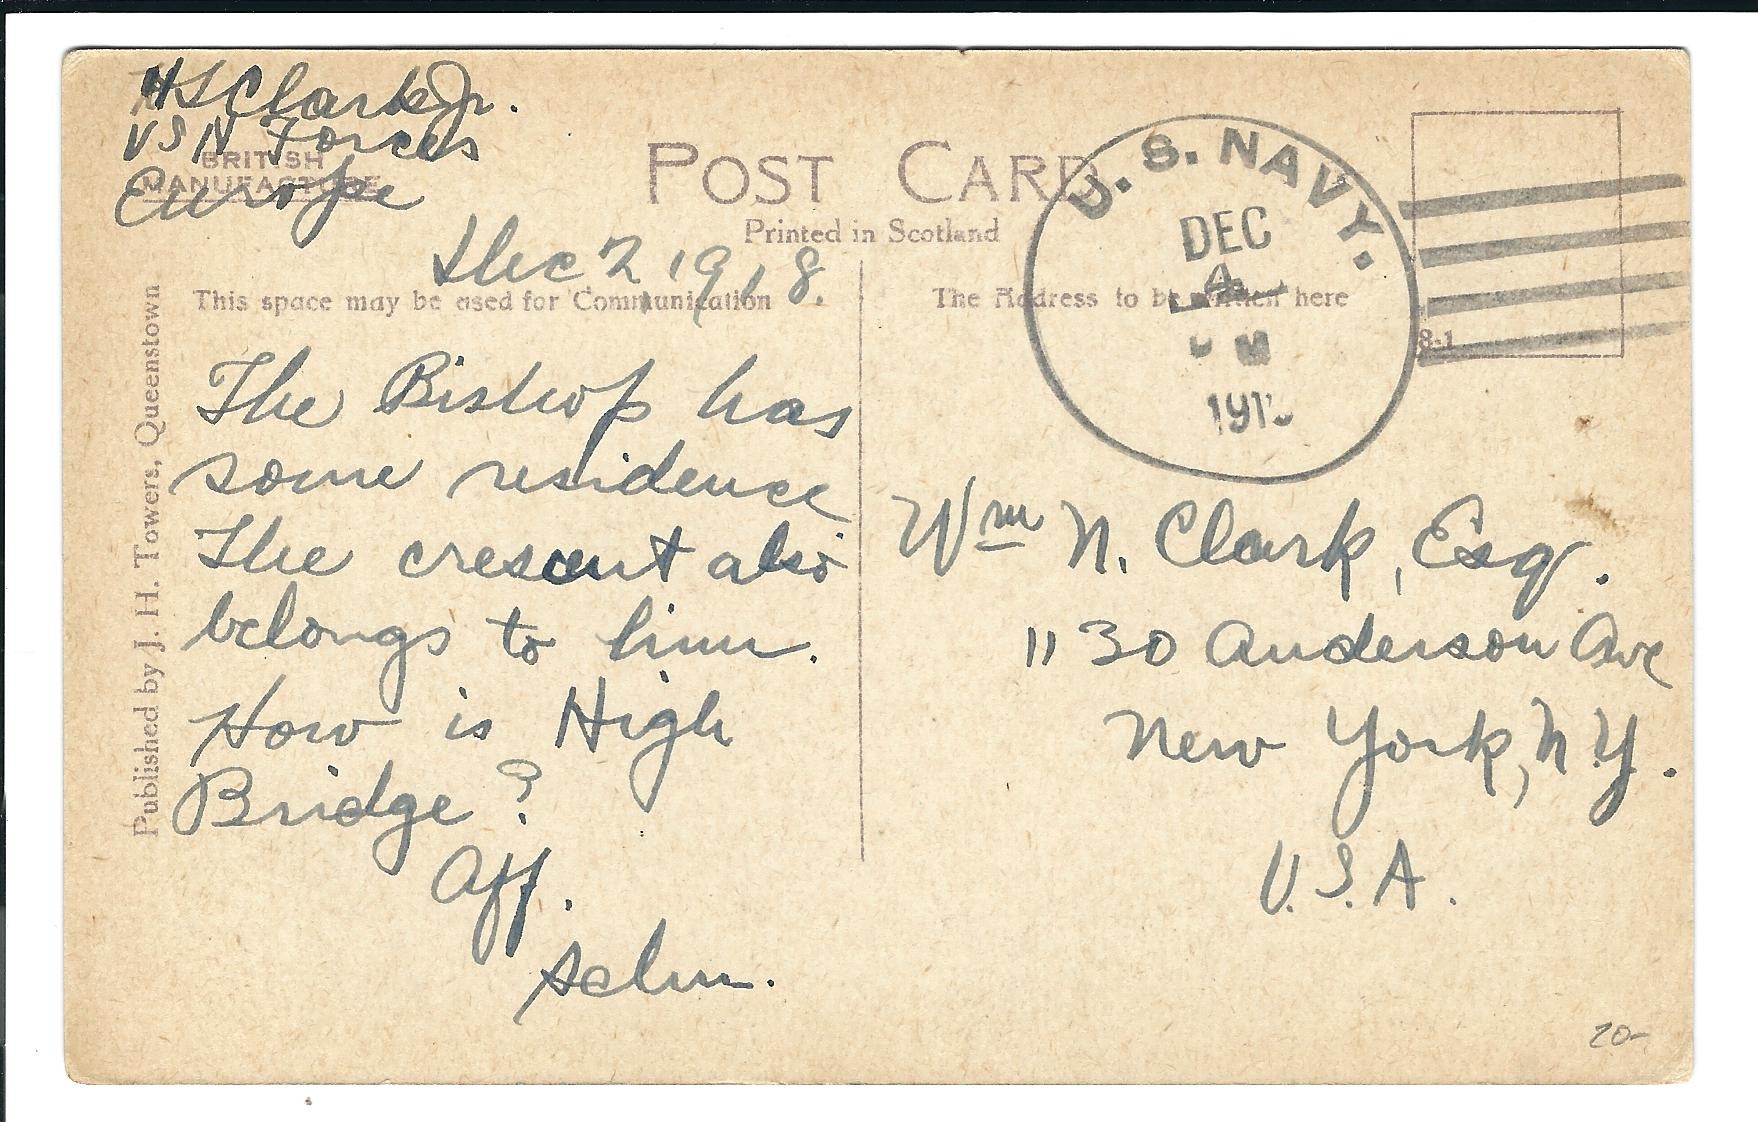 H S Clark Jr.
U S N Forces
Europe
BRITISH
MANUFACTURE
POST CARD
Printed in Scotland
Dec 2, 1918.
This space may be used for Communication
The Address to be written here
U. S. NAVY.
DEC
4
M
191
8-1
Published by J. H. Towers, Queenstown
The Bishop has
some residence
The crescent also
belongs to him.
How is High
Bridge?
Aff.
Wm N. Clark, Esq.
1130 Anderson Ave
New York, N.Y.
U.S.A.
20-